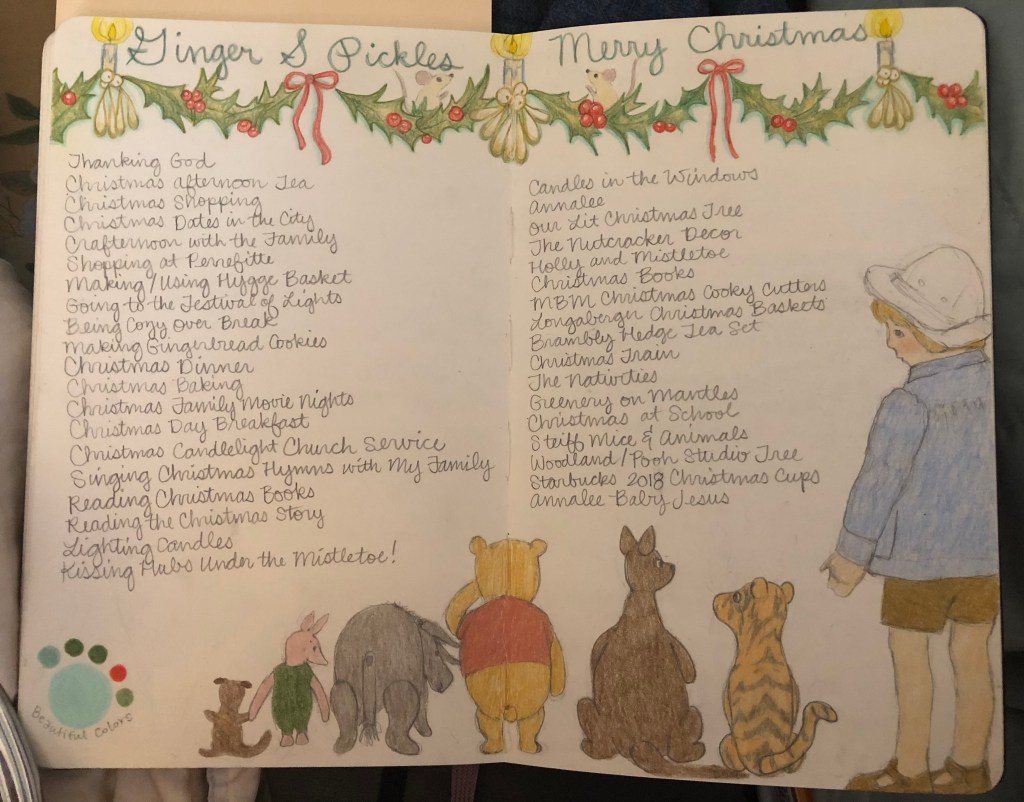 Ginger & Pickles
Thanking God
Christmas afternoon Tea
Christmas Shopping
Christmas Dates in the City
Crafternoon with the Family
Shopping at Perrefitte
Making/Using Hygge Basket
Going to the Festival of Lights
Being Cozy over Break
Making Gingerbread Cookies
Christmas Dinner
Christmas Baking
Christmas Family Movie Nights
Christmas Day Breakfast
Christmas Candlelight Church Service
Singing Christmas Hymns with My Family
Reading Christmas Books
Reading the Christmas Story
Lighting Candles
Kissing Hubs Under the Mistletoe!
Beautiful Colors
Merry Christmas
Candles in the Windows
Annalee
Our Lit Christmas Tree
The Nutcracker Decor
Holly and Mistletoe
Christmas Books
MBM Christmas Cooky Cutters
Longaberger Christmas Baskets
Brambly Hedge Tea Set
Christmas Train
The Nativities
Greenery on Mantles
Christmas at School
Steiff Mice & Animals
Woodland/Pooh Studio Tree
Starbucks 2018 Christmas Cups
Annalee Baby Jesus